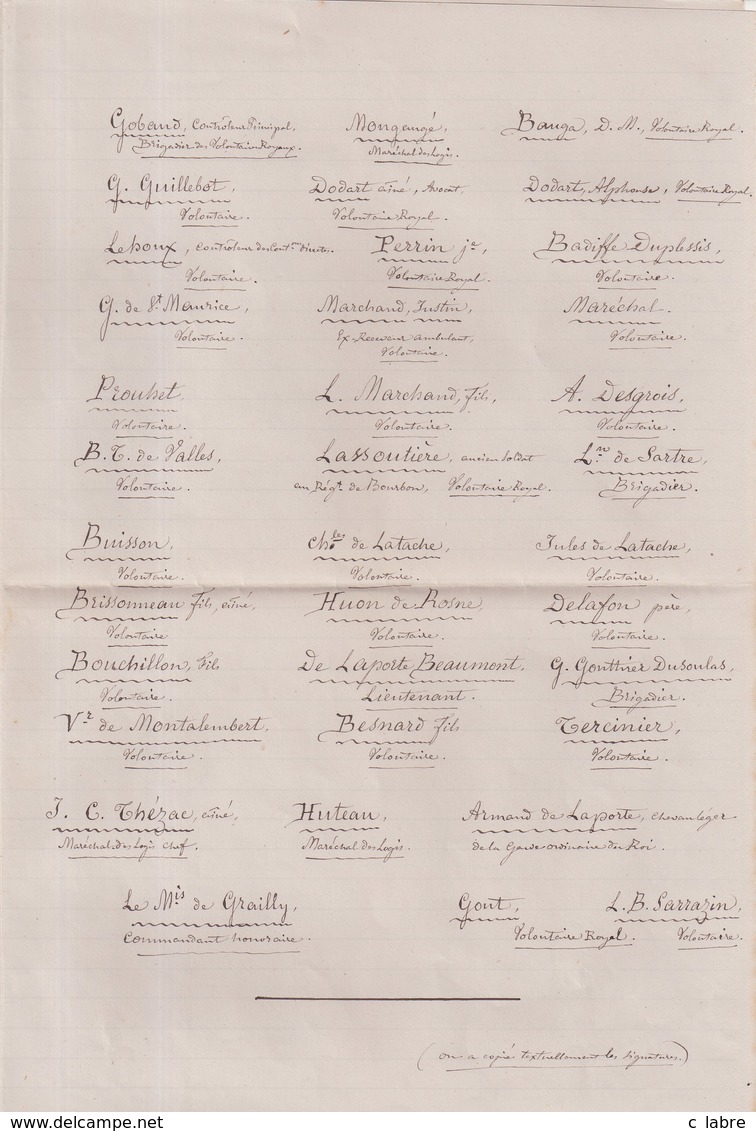 Gobaud, Contrôleur Principal, Mongaugé, Bauga, D. M., Volontaire Royal.
Brigadier des Volontaires Royaux. Maréchal des Logis.
G. Guillebot, Dodart aîné, Avocat, Dodart, Alphonse, Volontaire Royal.
Volontaire. Volontaire Royal.
Lehoux, Contrôleur des Cont.ons directes. Perrin je, Badiffe Duplessis,
Volontaire. Volontaire Royal. Volontaire.
G. de St. Maurice, Marchand, Justin, Maréchal.
Volontaire. Ex-Receveur ambulant, Volontaire.
Volontaire.
Prouhet, L. Marchand, fils, A. Desgrois,
Volontaire. Volontaire. Volontaire.
B. T. de Valles, Lassoutière, ancien soldat L.re de Sartre,
Volontaire. au Régt. de Bourbon, Volontaire Royal. Brigadier.
Buisson, Chles de Latache, Jules de Latache,
Volontaire. Volontaire. Volontaire.
Brissonneau fils, aîné, Huon de Rosne, Delafon père,
Volontaire Volontaire. Volontaire.
Bouchillon, fils De Laporte Beaumont, G. Gonthier Dusoulas,
Volontaire. Lieutenant. Brigadier.
Vr de Montalembert, Besnard fils Tercinier,
Volontaire. Volontaire. Volontaire.
J. C. Thézac, aîné, Huteau, Armand de Laporte, chevau léger
Maréchal des Logis chef. Maréchal des Logis. de la Garde ordinaire du Roi.
Le Mis de Grailly, Gout, L. B. Sarrazin,
Commandant honoraire. Volontaire Royal. Volontaire.
(on a copié textuellement les signatures.)
www.delcampe.net
c labre